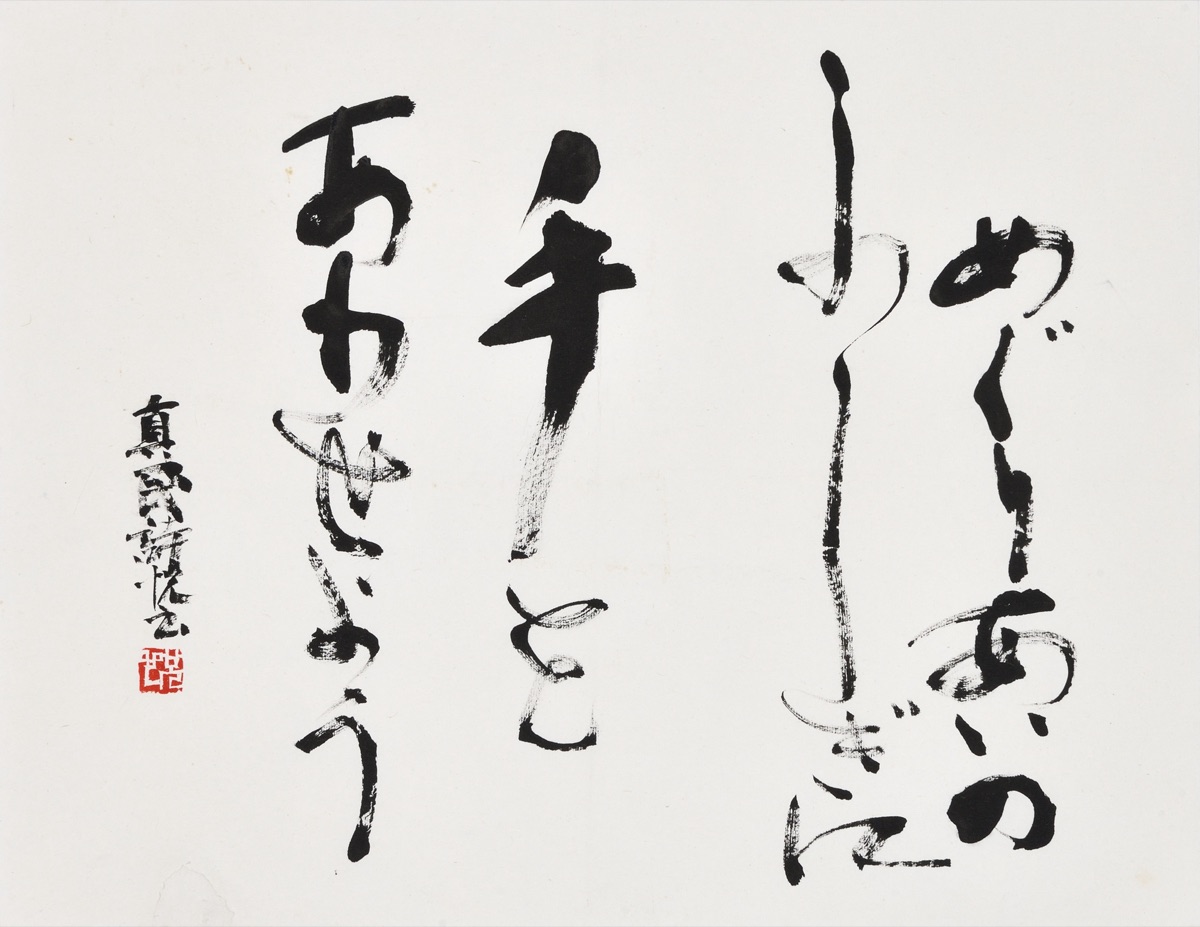 めぐりあいの
ふしぎに
手を
あわせよう
真民詩 悦書